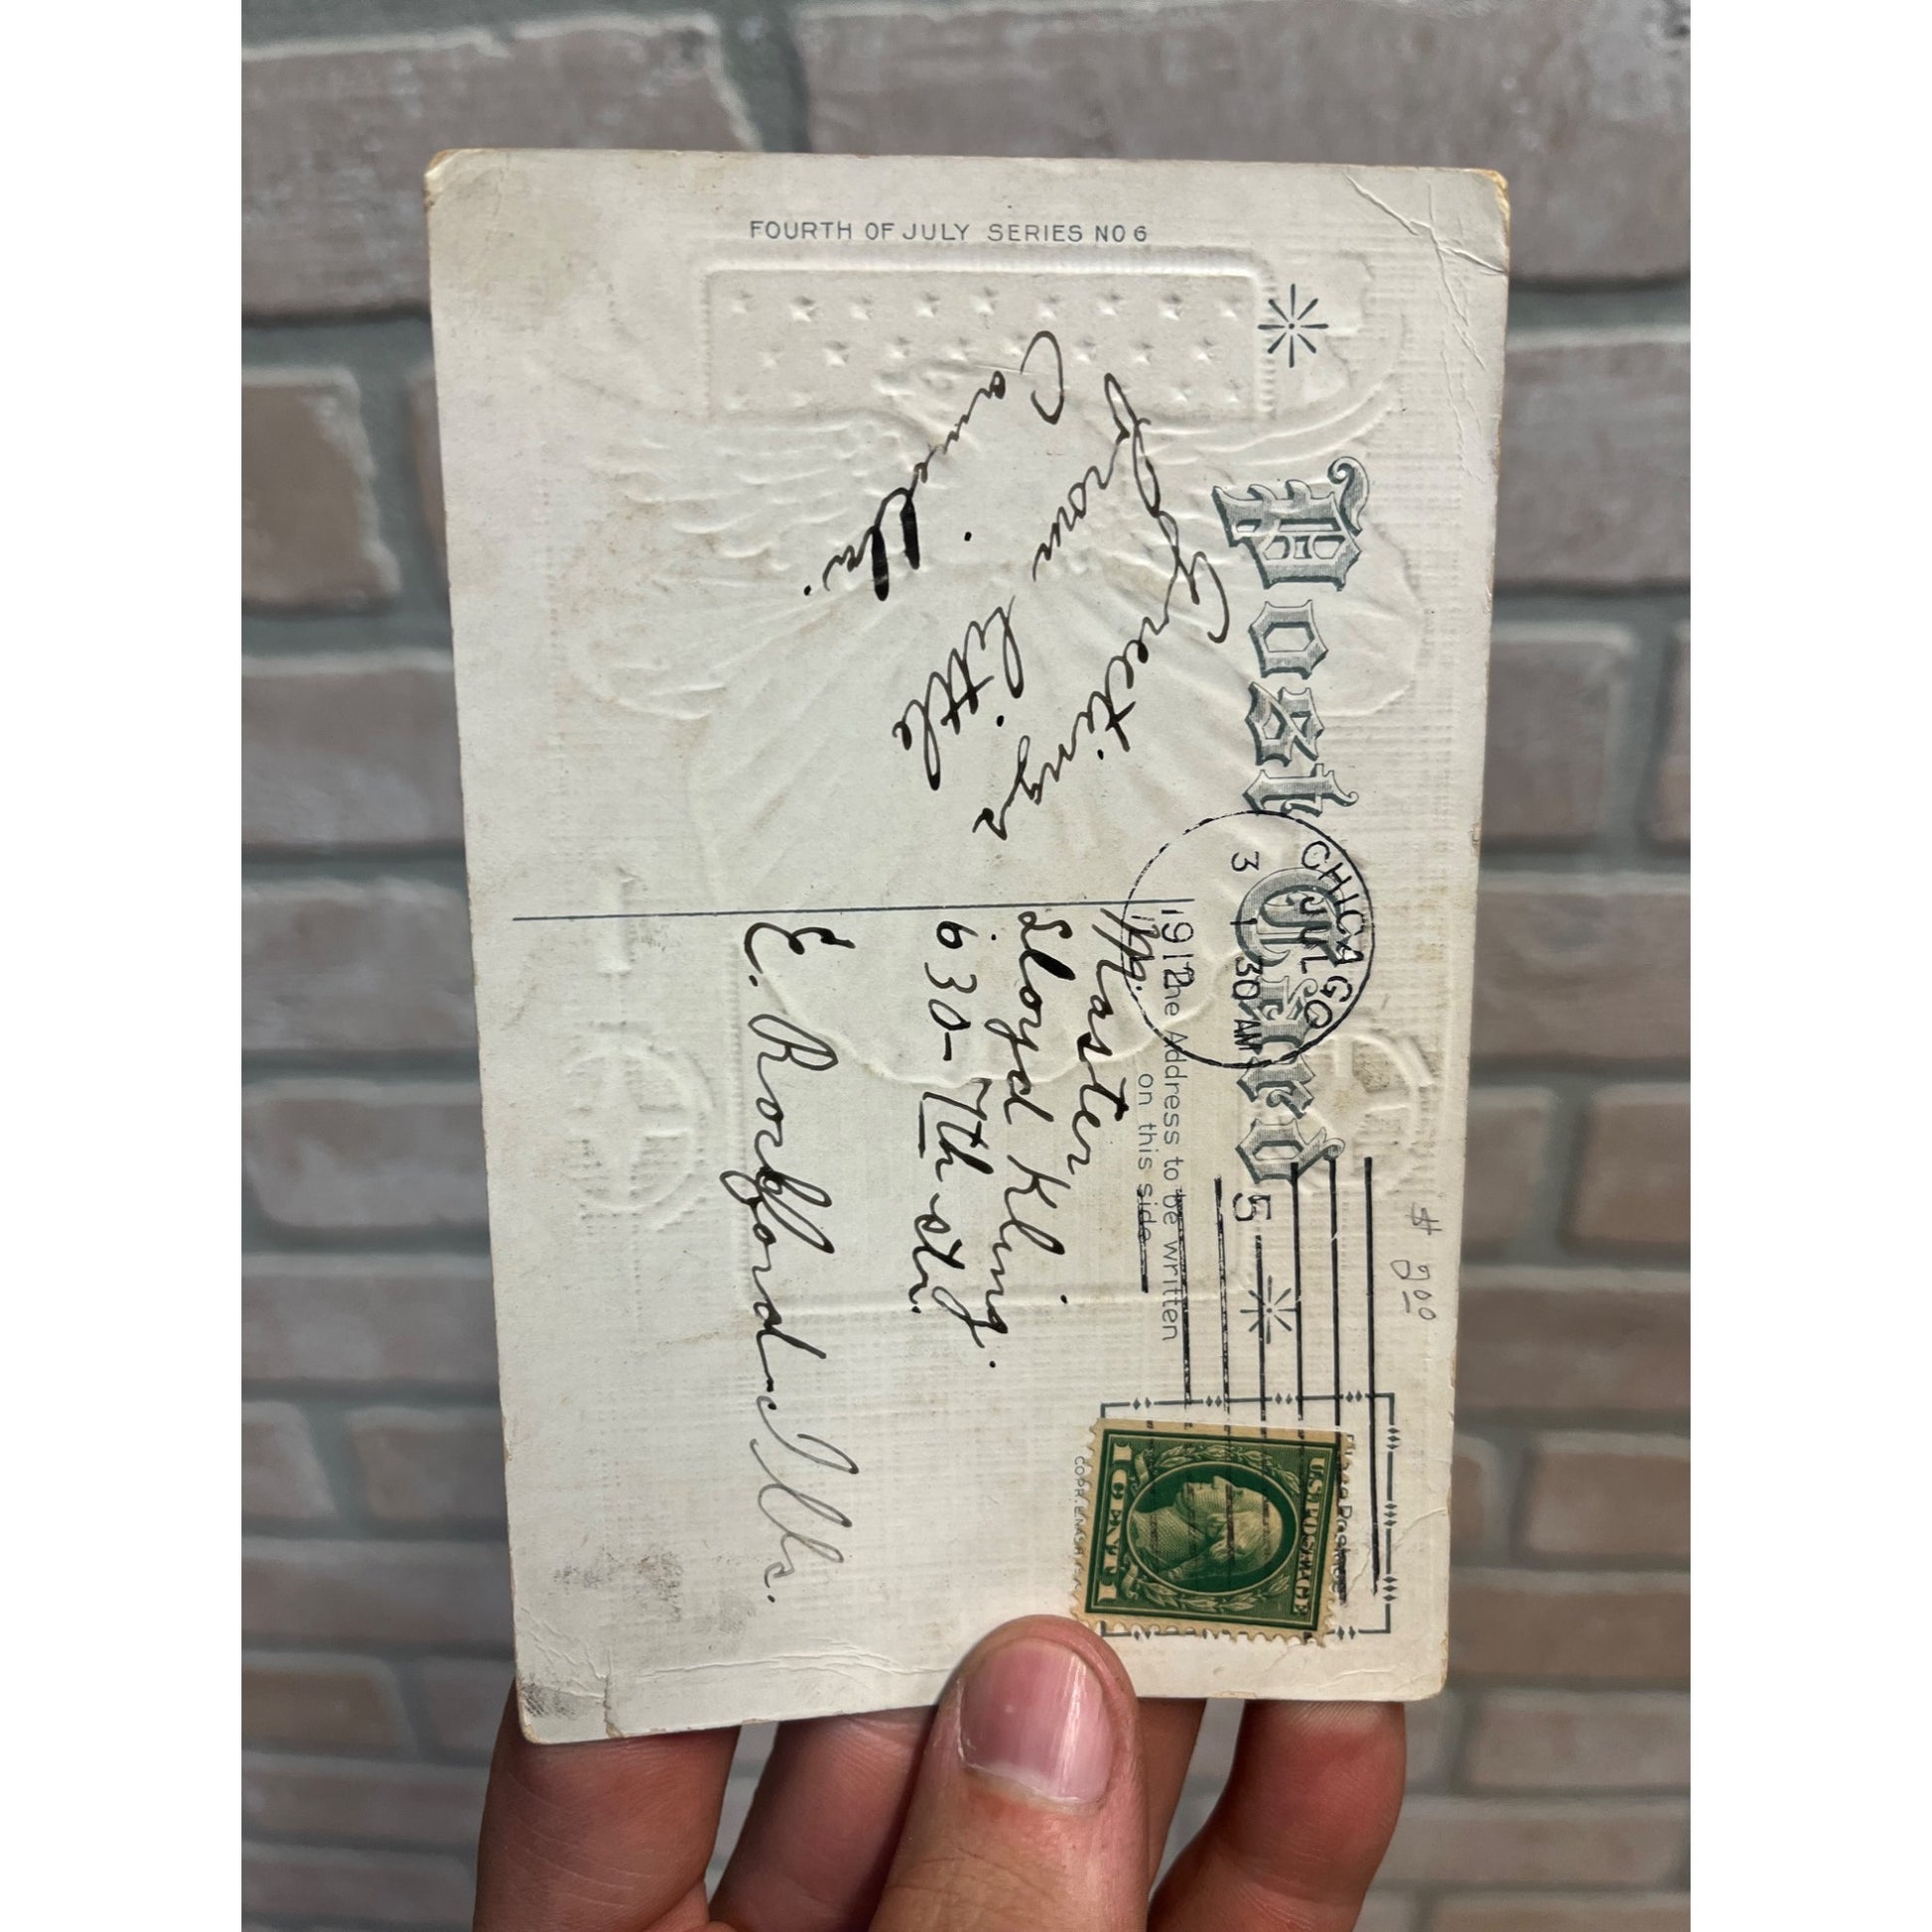 FOURTH OF JULY SERIES NO 6
Post Card
CHICAGO
JUL 3
1 30 AM
1912
5
$ 3 00
The Address to be written
on this side
U.S. POSTAGE
1 CENT 1
COPR. E. NASH
Greetings
from little
Camilla.
Master
Lloyd Kling.
630-7th str.
E. Rockford Ills.